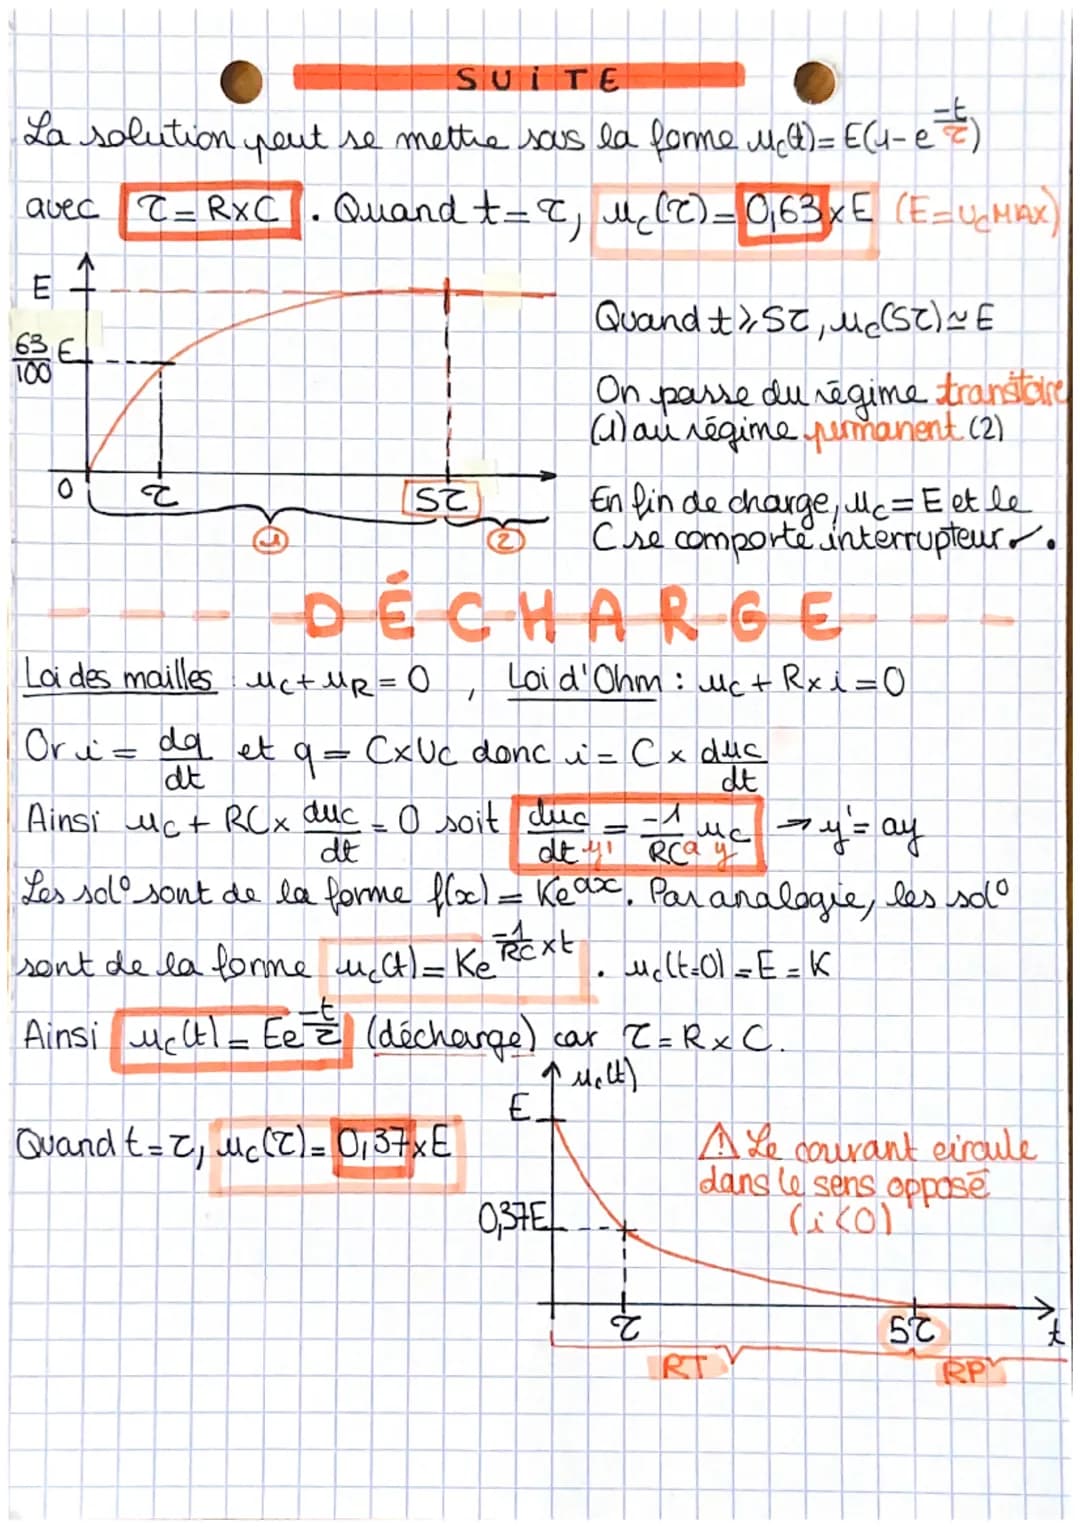 SUiTE
La solution peut se mettre sous la forme uc(t)= E(1-e^(-t/τ))
avec τ = R×C . Quand t = τ, uc(τ) = 0,63×E (E=UcMAX)
E
63/100 E
0 τ 5τ
1 2
Quand t ⩾ 5τ, uc(5τ) ≃ E
On passe du régime transitoire
(1) au régime permanent (2)
En fin de charge, uc = E et le
C se comporte interrupteur
DÉCHARGE
Loi des mailles : uc + uR = 0 , Loi d'Ohm : uc + R×i = 0
Or i = dq/dt et q = C×Uc donc i = C × duc/dt
Ainsi uc + RC× duc/dt = 0 soit duc/dt = -1/RC uc → y' = ay
y' a y
Les sol° sont de la forme f(x) = Ke^(ax). Par analogie, les sol°
sont de la forme uc(t) = Ke^(-1/RC ×t) . uc(t=0) = E = K
Ainsi uc(t) = Ee^(-t/τ) (décharge) car τ = R×C.
Quand t = τ, uc(τ) = 0,37×E
uc(t)
E
0,37E
τ 5τ t
RT RP
⚠ Le courant circule
dans le sens opposé
(i<0)